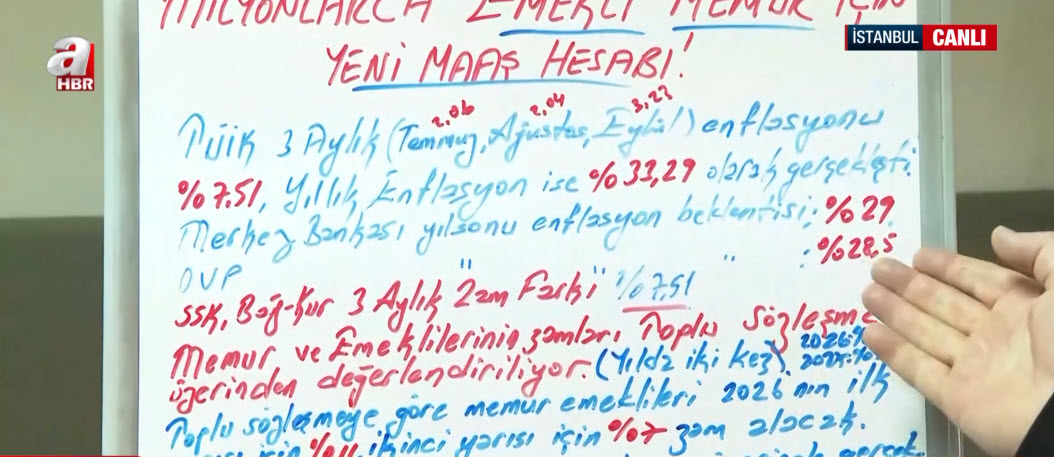 a
HBR
İSTANBUL CANLI
MİLYONLARCA EMEKLİ MEMUR İÇİN
YENİ MAAŞ HESABI!
2,06 2,04 3,23
TÜİK 3 Aylık (Temmuz, Ağustos, Eylül) enflasyonu
%7.51, Yıllık Enflasyon ise %33,29 olarak gerçekleşti.
Merkez Bankası yılsonu enflasyon beklentisi: %29
OVP " " : %28,5
SSK, Bağ-Kur 3 Aylık "Zam Farkı" %7,51
Memur ve Emeklilerinin zamları Toplu Sözleşme
üzerinden değerlendiriliyor. (Yılda iki kez). 2026:%
Toplu sözleşmeye göre memur emeklileri 2026'nın ilk
için %11, ikinci yarısı için %7 zam alacak.